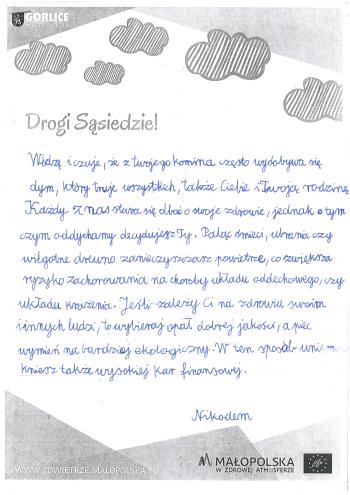 GORLICE
Drogi Sąsiedzie!
Widzę i czuję, że z twojego komina często wydobywa się
dym, który truje wszystkich, także Ciebie i Twoją rodzinę.
Każdy z nas stara się dbać o swoje zdrowie, jednak o tym
czym oddychamy decydujesz Ty. Paląc śmieci, ubrania czy
wilgotne drewno zanieczyszczasz powietrze, co zwiększa
ryzyko zachorowania na choroby układu oddechowego, czy
układu krążenia. Jeśli zależy Ci na zdrowiu swoim
i innych ludzi, to wybieraj opał dobrej jakości, a piec
wymień na bardziej ekologiczny. W ten sposób unik-
kniesz także wysokiej kar finansowej.
Nikodem
WWW.POWIETRZE.MALOPOLSKA.PL
MAŁOPOLSKA
W ZDROWEJ ATMOSFERZE